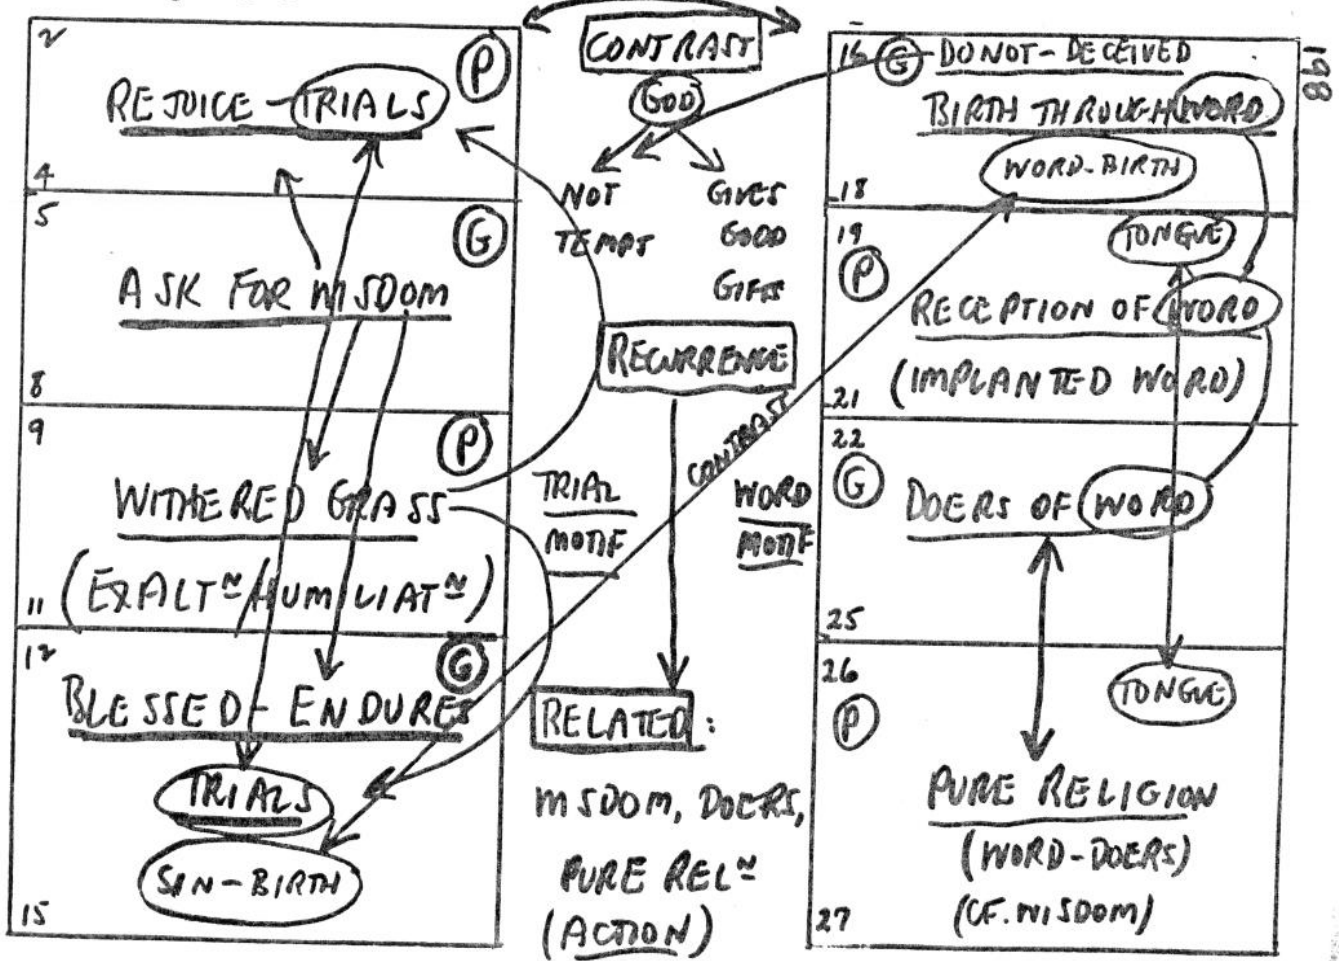 2
P
REJOICE - TRIALS
4
5
G
ASK FOR WISDOM
8
9
P
WITHERED GRASS
(EXALTᴺ/HUMILIATᴺ)
11
12
G
BLESSED - ENDURES
TRIALS
SIN-BIRTH
15
CONTRAST
GOD
NOT
TEMPT
GIVES
GOOD
GIFTS
RECURRENCE
CONTRAST
TRIAL
MOTIF
WORD
MOTIF
RELATED:
WISDOM, DOERS,
PURE RELᴺ
(ACTION)
16 G DO NOT - DECEIVED
BIRTH THROUGH WORD
WORD-BIRTH
18
19
TONGUE
P
RECEPTION OF WORD
(IMPLANTED WORD)
21
22
G
DOERS OF WORD
25
26
TONGUE
P
PURE RELIGION
(WORD-DOERS)
(CF. WISDOM)
27
198